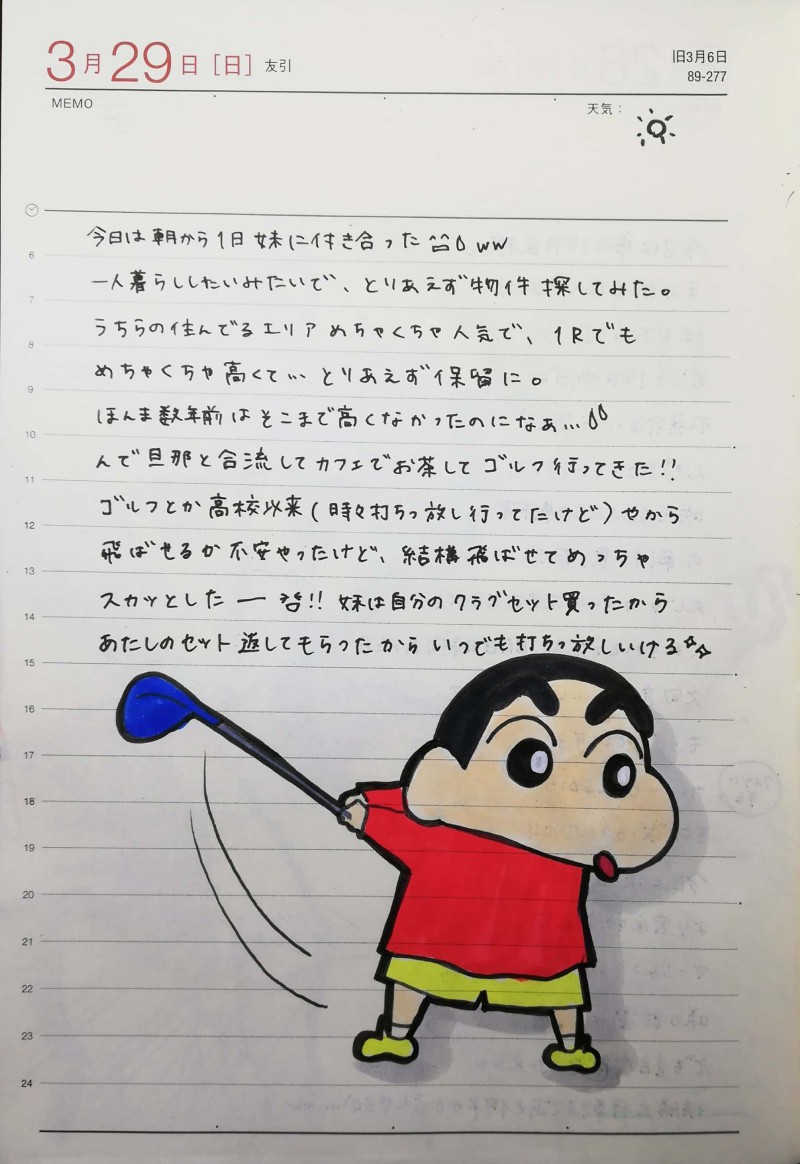 3月29日［日］友引
旧3月6日
89-277
MEMO
天気：
今日は朝から1日妹に付き合った ww
6
一人暮らししたいみたいで、とりあえず物件探してみた。
7
うちらの住んでるエリアめちゃくちゃ人気で、1Rでも
8
めちゃくちゃ高くて… とりあえず保留に。
9
ほんま数年前はそこまで高くなかったのになぁ…
10
んで旦那と合流してカフェでお茶してゴルフ行ってきた!!
11
ゴルフとか高校以来(時々打ちっ放し行ってたけど)やから
12
飛ばせるか不安やったけど、結構飛ばせてめっちゃ
13
スカッとしたー!! 妹は自分のクラブセット買ったから
14
あたしのセット返してもらったからいつでも打ちっ放しいける☆☆
15
16
17
18
19
20
21
22
23
24